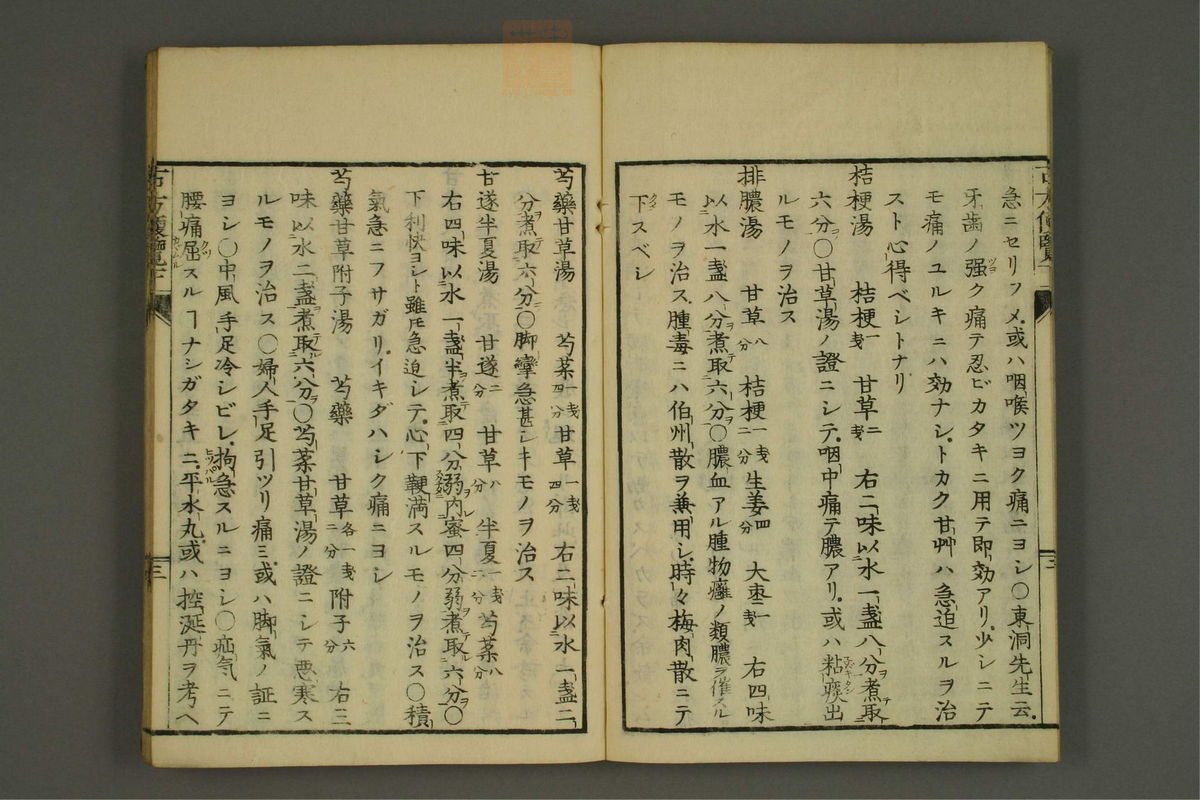 急ニセリフメ或ハ咽喉ツヨク痛ニヨシ〇東洞先生云
牙歯ノ强ク痛テ忍ビカタキニ用テ即効アリ少シニテ
モ痛ノユルキニハ効ナシトカク甘艸ハ急迫スルヲ治
スト心得ベシトナリ
桔梗湯 桔梗一戔 甘草二戔 右二味以水一盞八分煮取
六分〇甘草湯ノ證ニシテ咽中痛テ膿アリ或ハ粘痰出
ルモノヲ治ス
排膿湯 甘草八分 桔梗一戔二分 生姜四分 大棗二戔 右四味
以水一盞八分煮取六分〇膿血アル腫物癰ノ類膿ヲ催スル
モノヲ治ス腫毒ニハ伯州散ヲ兼用シ時々梅肉散ニテ
下スベシ
芍藥甘草湯 芍薬一戔四分 甘草一戔四分 右二味以水一盞二
分煮取六分〇脚攣急甚シキモノヲ治ス
甘遂半夏湯 甘遂二分 甘草八分 半夏一戔二分 芍薬八分
右四味以水一盞半煮取四分弱内蜜四分弱煮取六分〇
下利快ヨシト雖モ急迫シテ心下鞕満スルモノヲ治ス〇積
氣急ニフサガリイキダハシク痛ニヨシ
芍藥甘草附子湯 芍藥 甘草各一戔二分 附子六分 右三
味以水二盞煮取六分〇芍薬甘草湯ノ證ニシテ悪寒ス
ルモノヲ治ス〇婦人手足引ツリ痛ミ或ハ脚氣ノ証ニ
ヨシ〇中風手足冷シビレ拘急スルニヨシ〇疝気ニテ
腰痛屈スルヿナシガタキニ平水丸或ハ控涎丹ヲ考ヘ
古方便覽
三